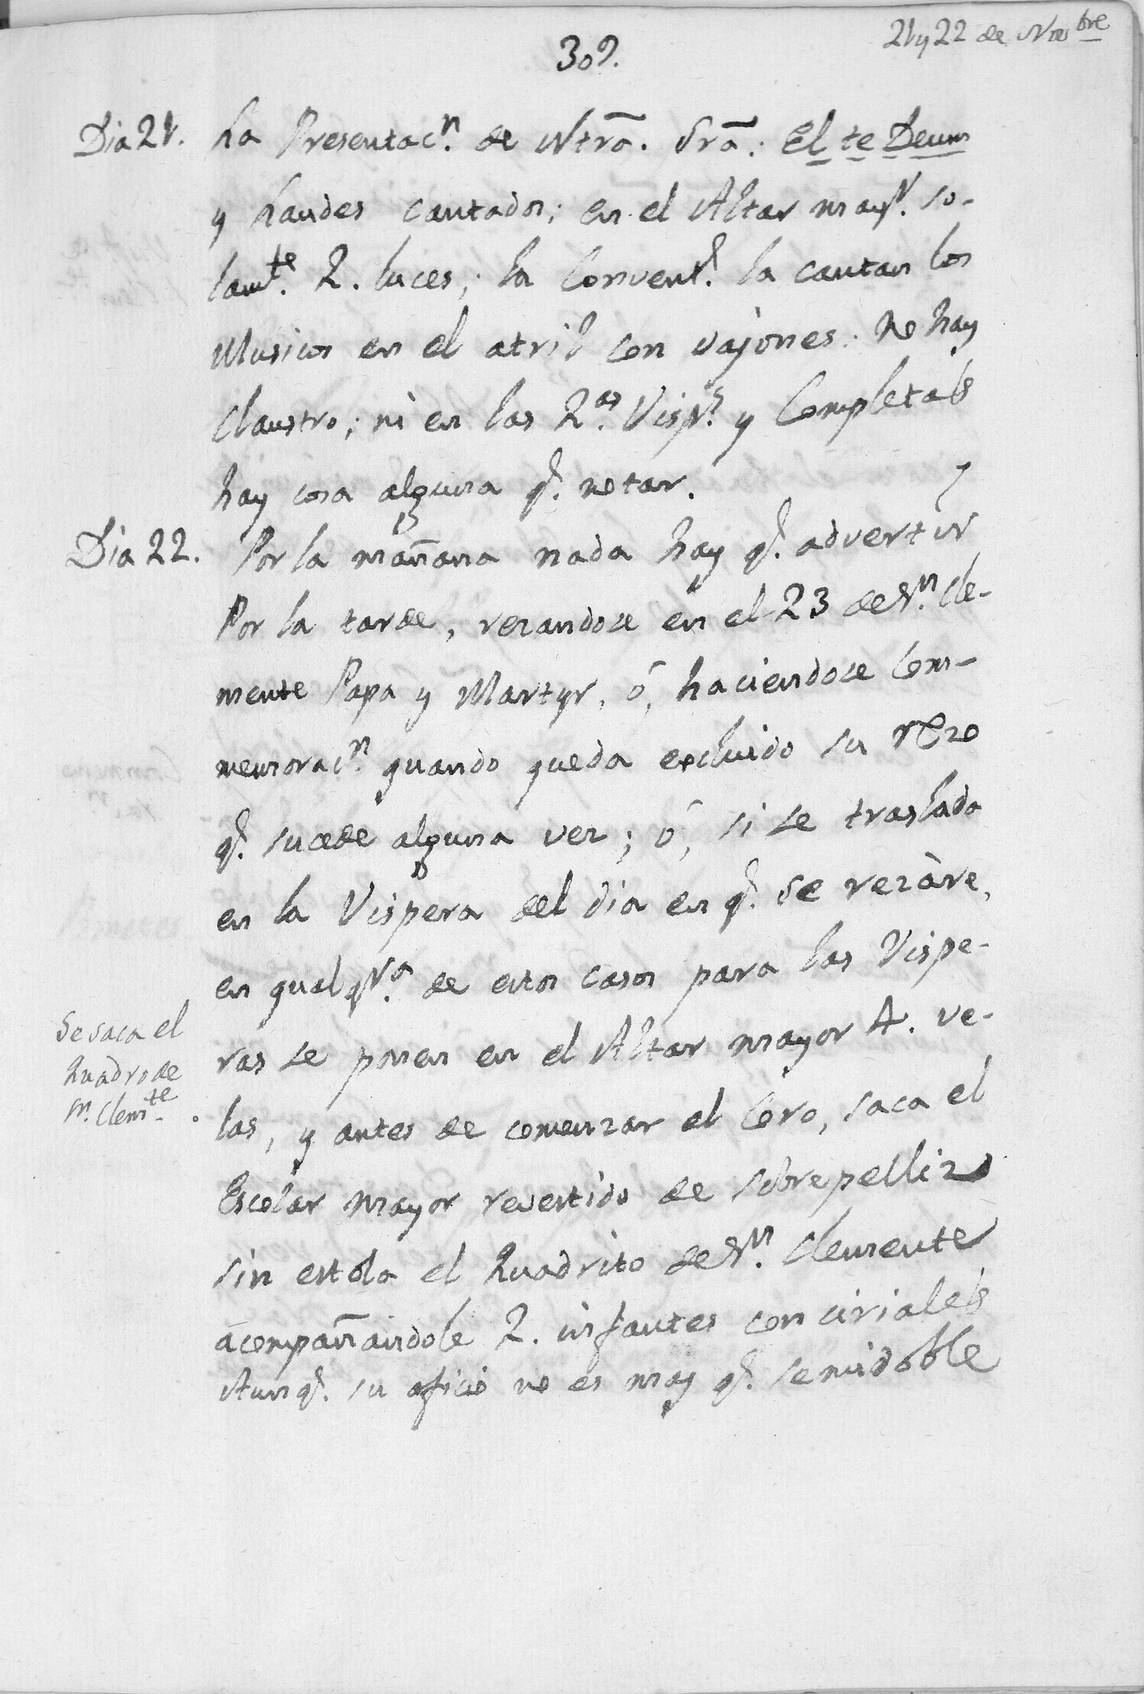 21 y 22 de Nov.bre
309.
Dia 21. La Presentac.n de Ntrã. Srã: El te Deum
y Laudes cantados; en el Altar may.r so-
lam.te 2. luces; la Convent.l la cantan los
Musicos en el atril con vajones: No hay
Claustro; ni en las 2.as Visp.s y Completas
hay cosa alguna q.e notar.
Dia 22. Por la mañana nada hay q.e advertir
Por la tarde, rezandose en el 23 de S.n Cle-
mente Papa y Martyr, ó, haciendose Com-
memorac.n quando queda excluido su rezo
q.e sucede alguna vez; ó, si se traslada
en la Vispera del dia en q.e se rezàre,
en qualq.ra de estos casos para las Vispe-
ras se ponen en el Altar mayor 4. ve-
Se saca el
Quadro de
S.n Clem.te.
las, y antes de comenzar el Coro, saca el
Escolar mayor revestido de sobrepelliz
sin estola el Quadrito de S.n Clemente
acompañandole 2. infantes con ciriales
Aunq.e su oficio no es mas q.e semidoble